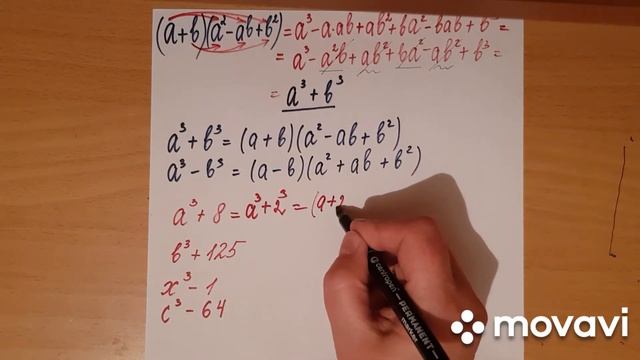 (a+b)(a²-ab+b²)=a³-a·ab+ab²+ba²-bab+b³=
= a³-a²b+ab²+ba²-ab²+b³=
= a³+b³
a³+b³=(a+b)(a²-ab+b²)
a³-b³=(a-b)(a²+ab+b²)
a³+8=a³+2³=(a+2
b³+125
x³-1
c³-64
centropen PERMANENT
movavi